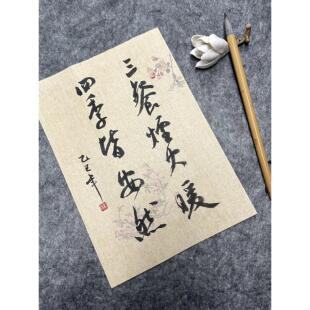 三餐烟火暖
四季皆安然
乙巳年